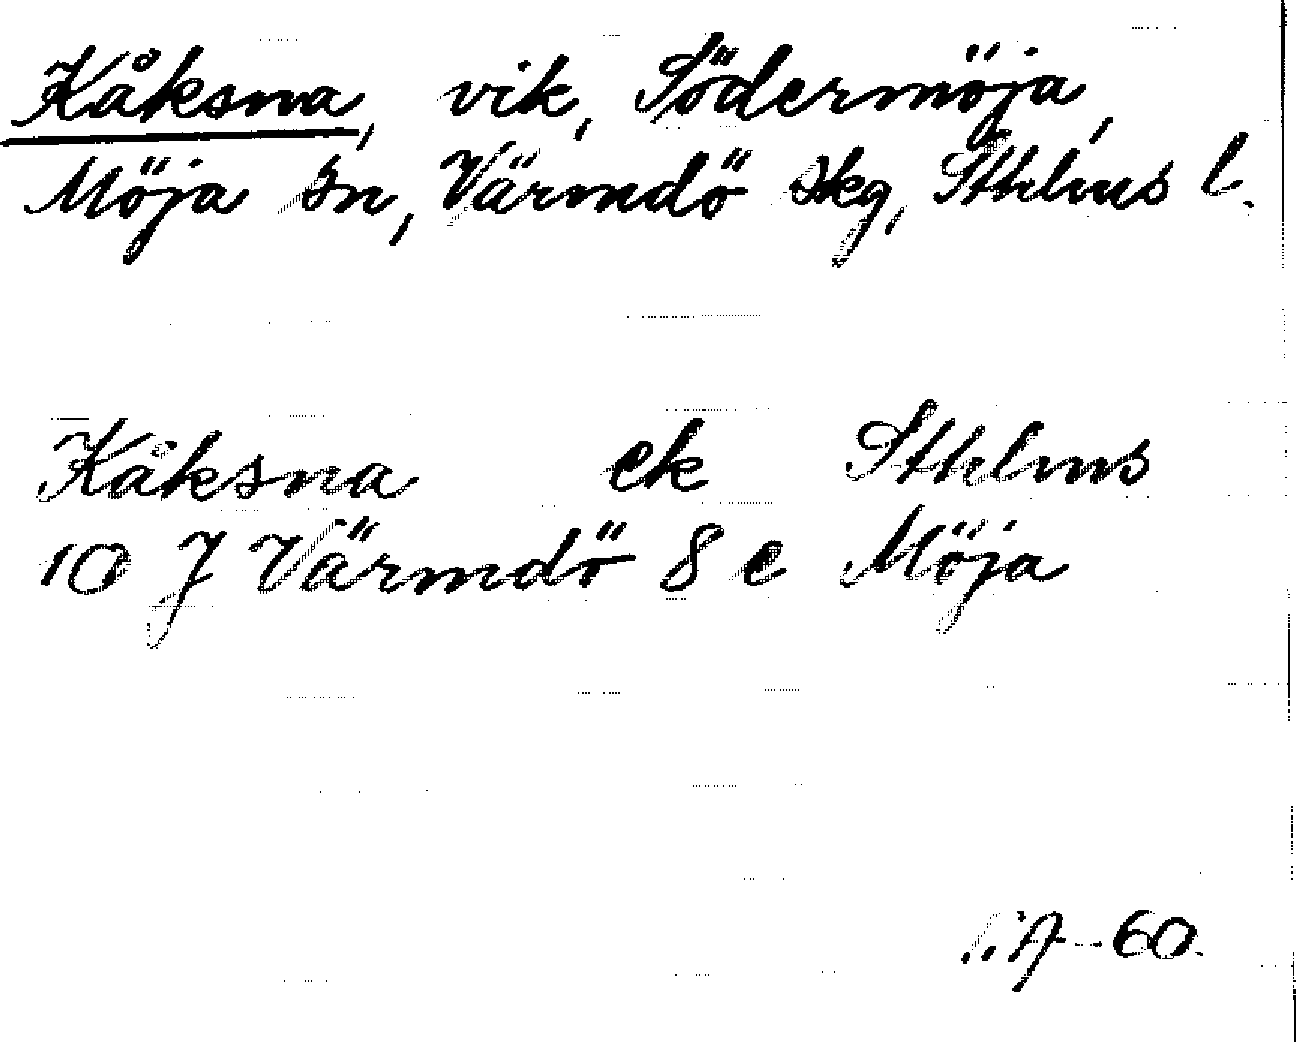 Kåksna, vik, Södermöja,
Möja sn, Värmdö skg, Sthlms l.
Kåksna ek Sthlms
10 J Värmdö 8 e Möja
60